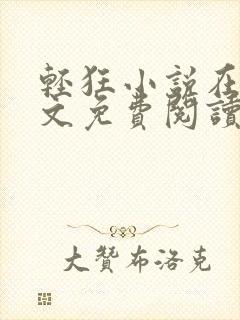 輕狂小說在
文免費閱讀
大贊布洛克